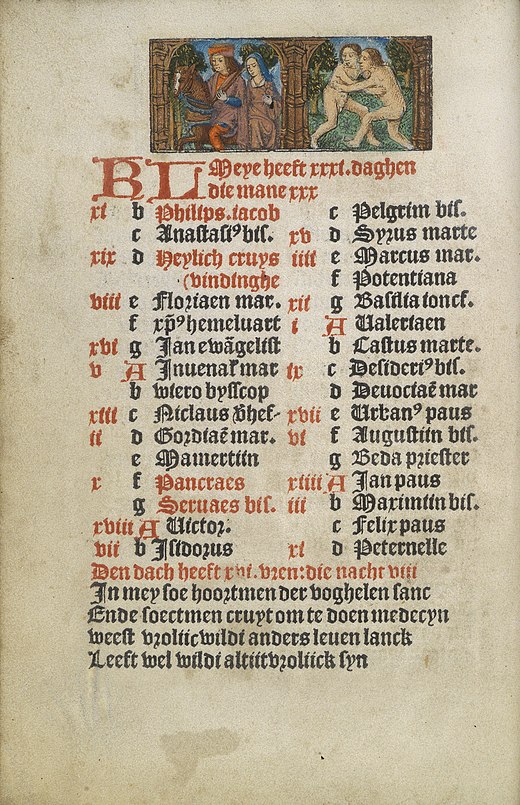 KL Meye heeft xxxi. daghen
die mane xxx
xi b Philips. iacob
c Anastasiꝰ bis.
xix d Heylich cruys
(vindinghe
viii e Floriaen mar.
f xp̄ꝰ hemeluart
xvi g Jan ewāgelist
v A Inuenaꝉ mar
b wiero bysscop
xiii c Niclaus v̄hef-
ii d Gordiaē mar.
e Mamertiin
x f Pancraes
g Seruaes bis.
xviii A Uictor.
vii b Isidorus
c Pelgrim bis.
xv d Syrus marte
iiii e Marcus mar.
f Potentiana
xii g Basilia ioncf.
i A Ualeriaen
b Castus marte.
ix c Desideriꝰ bis.
d Deuociaē mar
xvii e Urbanꝰ paus
vi f Augustiin bis.
g Beda priester
xiiii A Jan paus
iii b Maximiin bis.
c Felix paus
xi d Peternelle
Den dach heeft xvi. vren: die nacht viii
In mey soe hoortmen der voghelen sanc
Ende soectmen cruyt om te doen medecyn
weest vroliic wildi anders leuen lanck
Leeft wel wildi altiit vroliick syn